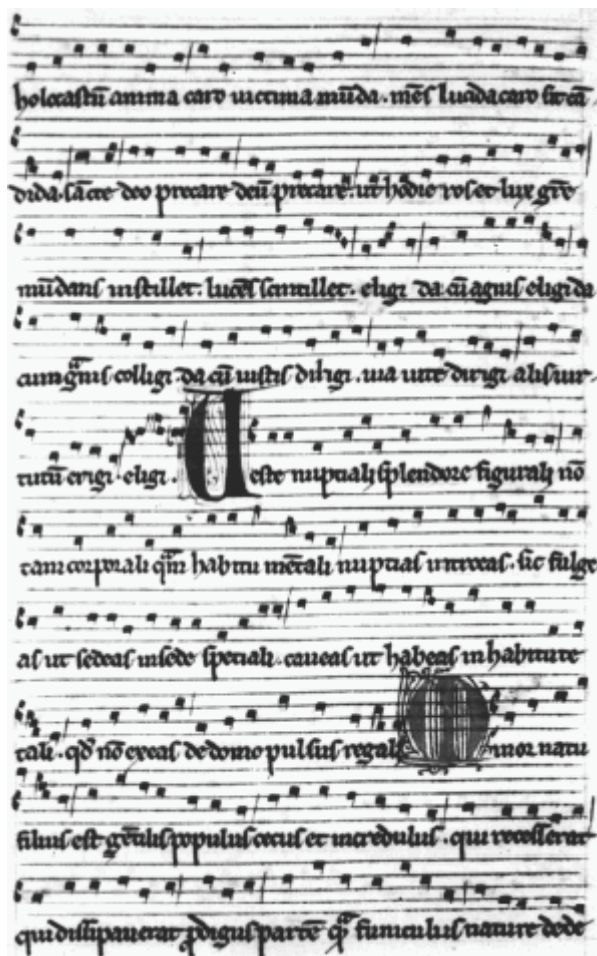 holocastū anima caro uictima mūda . mēs lucida caro sit cā
dida . sācte deo precare deū precare . ut hodie ros et lux grē
mūdans instillet . lucēs scintillet . eligi da cū agnis eligi da
cum granis colligi . da cū iustis dirigi . uia uite dirigi alis uir
tutū erigi . eligi . Ueste nuptiali splendore figurali nō
tam corporali quam habitu mētali nuptias introeas . sic fulge
as ut sedeas in sede speciali . caueas ut habeas in habitu
tali . qd nō exeas de domo pulsus regali Minor natu
filius est gētilis populus cecus et incredulus . qui recesserat
qui dissipauerat prodigus partē funiculus nature dede